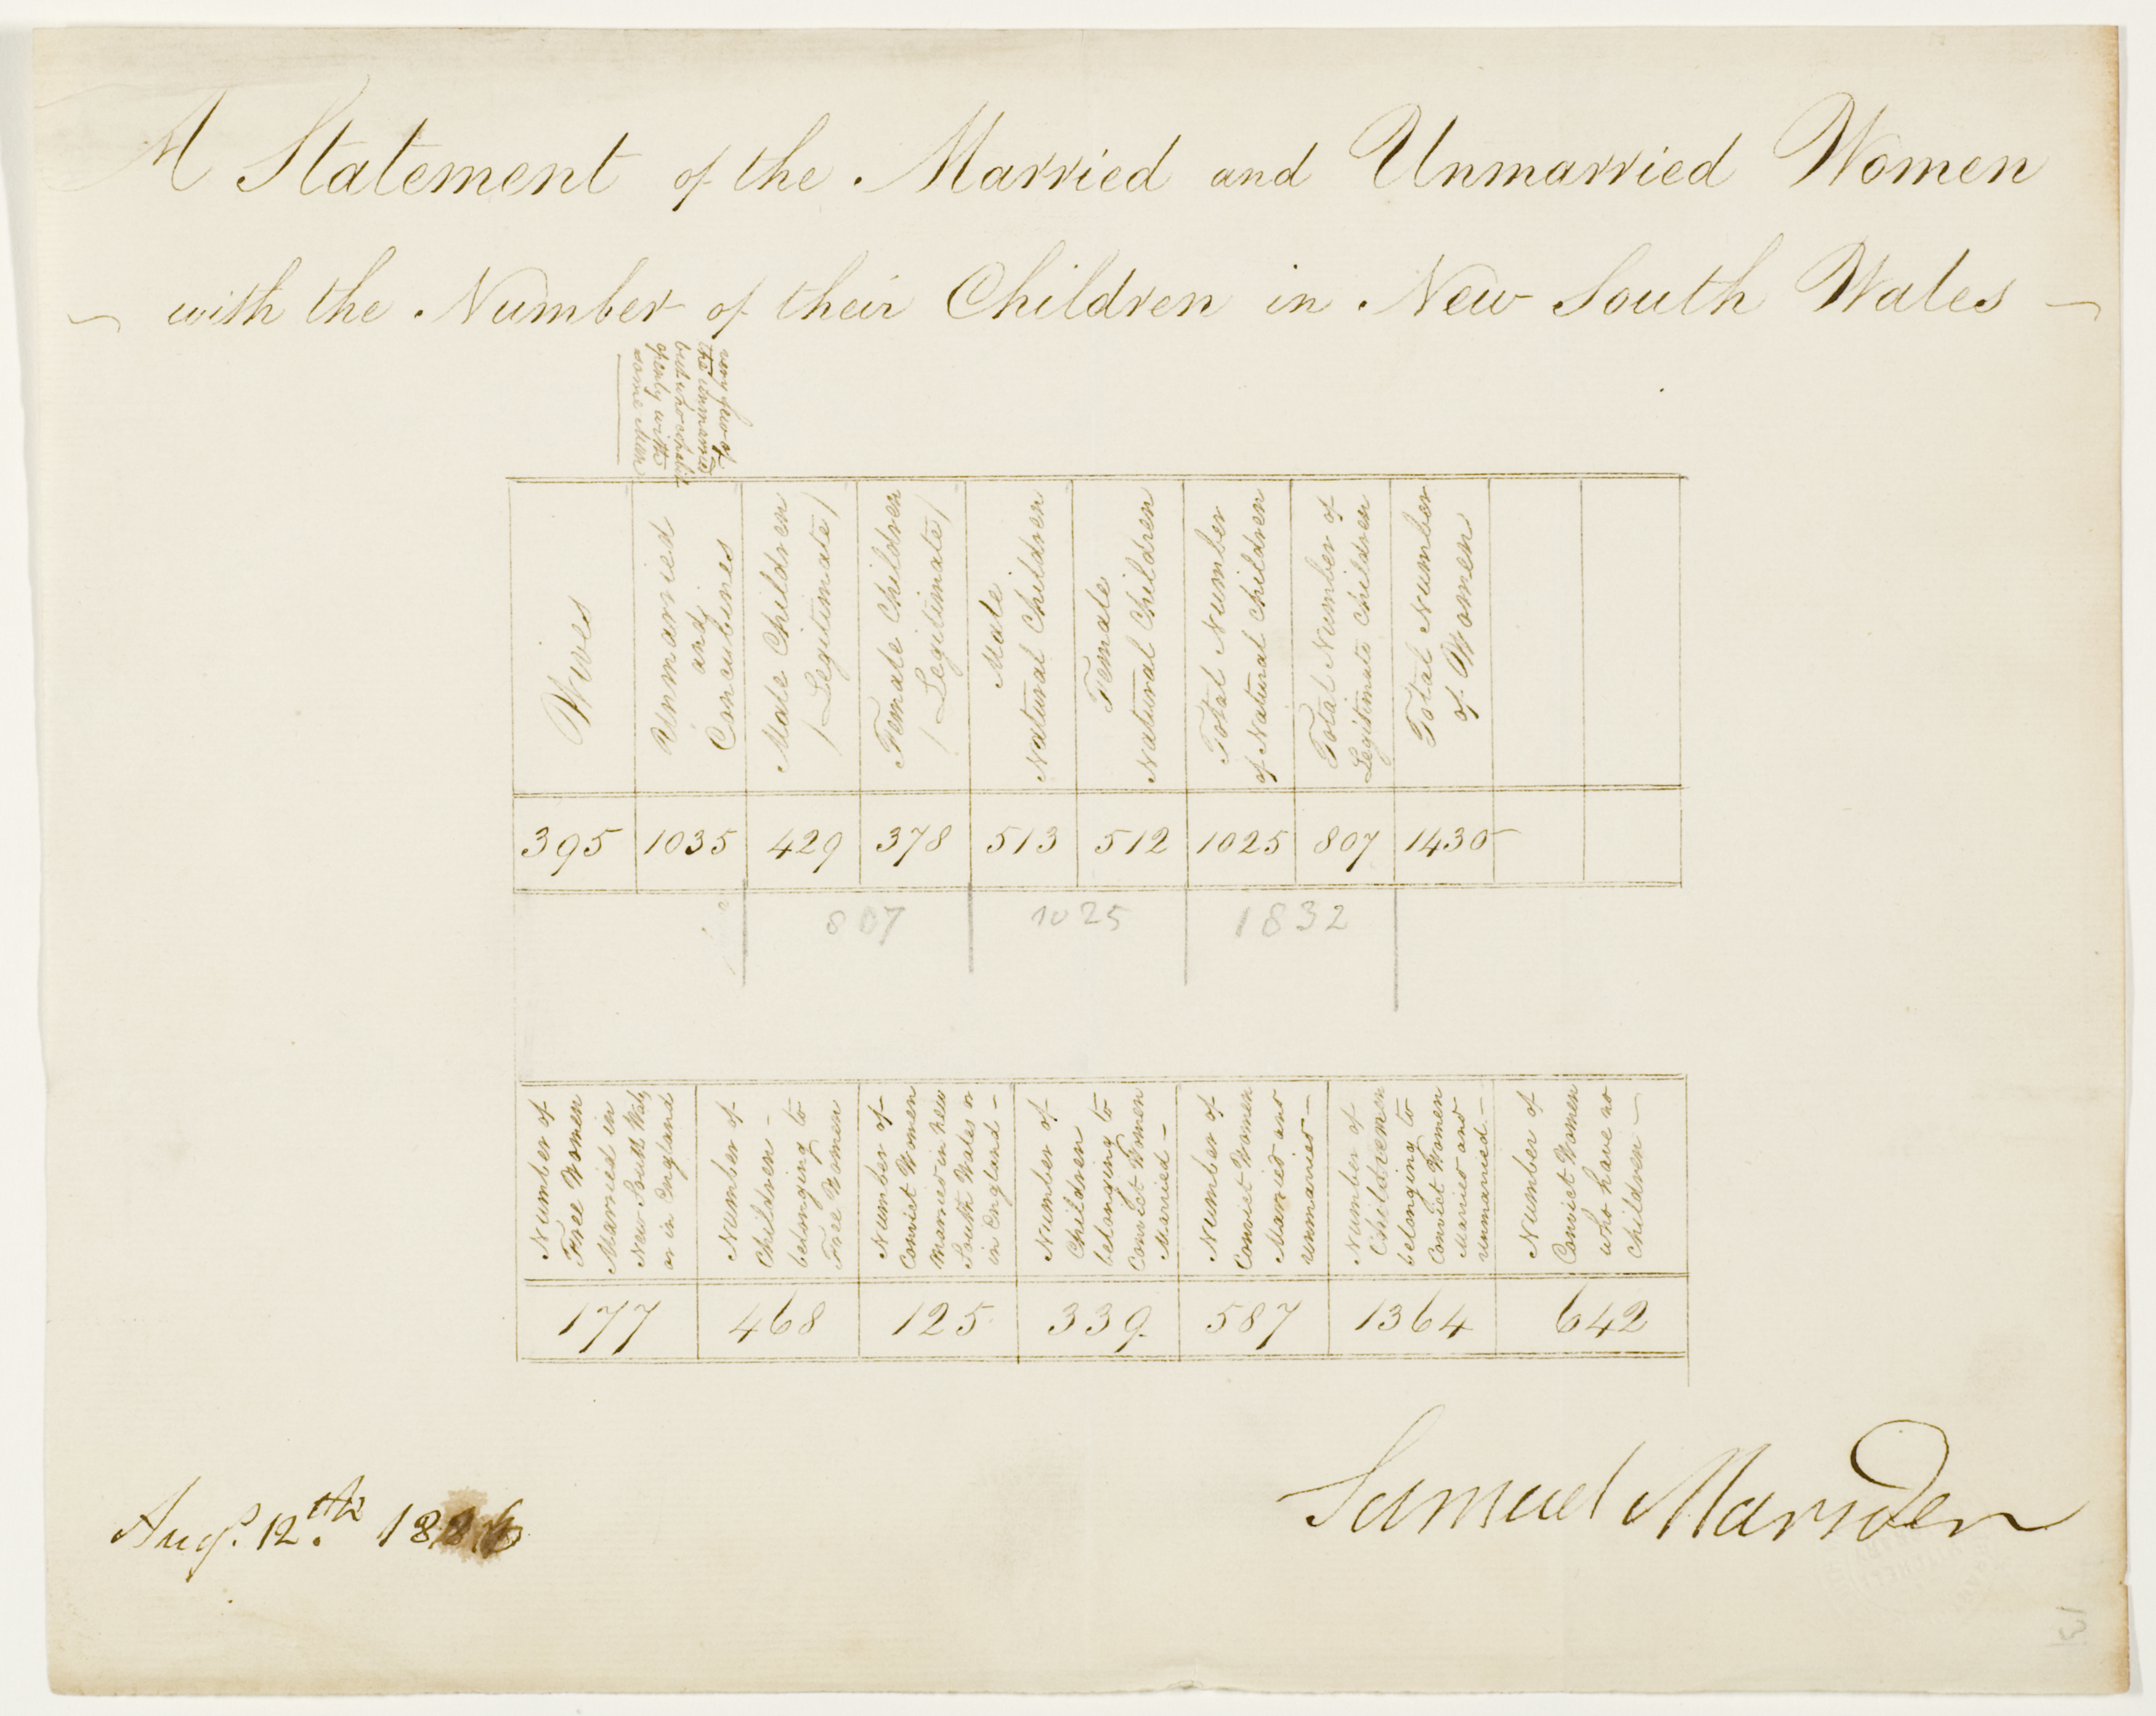 A Statement of the Married and Unmarried Women
with the Number of their Children in New South Wales
very few of
the unmarried
but who cohabit
openly with
some man
Wives
Unmarried
and
Concubines
Male Children
/Legitimate/
Female Children
/Legitimate/
Male
Natural Children
Female
Natural Children
Total Number
of Natural Children
Total Number of
Legitimate Children
Total Number
of Women
395 1035 429 378 513 512 1025 807 1430
807 1025 1832
Number of
Free Women
Married in
New South Wales
or in England
Number of
Children -
belonging to
Free Women
Number of
Convict Women
Married in New
South Wales or
in England -
Number of
Children
belonging to
Convict Women
Married -
Number of
Convict Women
Married and
unmarried -
Number of
Children
belonging to
Convict Women
Married and
unmarried -
Number of
Convict Women
who have no
Children -
177 468 125 339 587 1364 642
Samuel Marsden
Augt. 12th
13